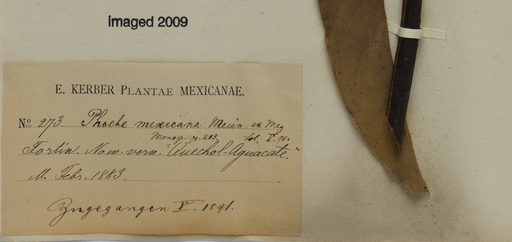 imaged 2009
E. KERBER PLANTAE MEXICANAE.
No 273. Phoebe mexicana Meisn. ex Mez
Monog. p. 203.
Fortin. Nom. vern. "Quechol-Aguacate."
M. Febr. 1883.
Zugegangen V. 1891.